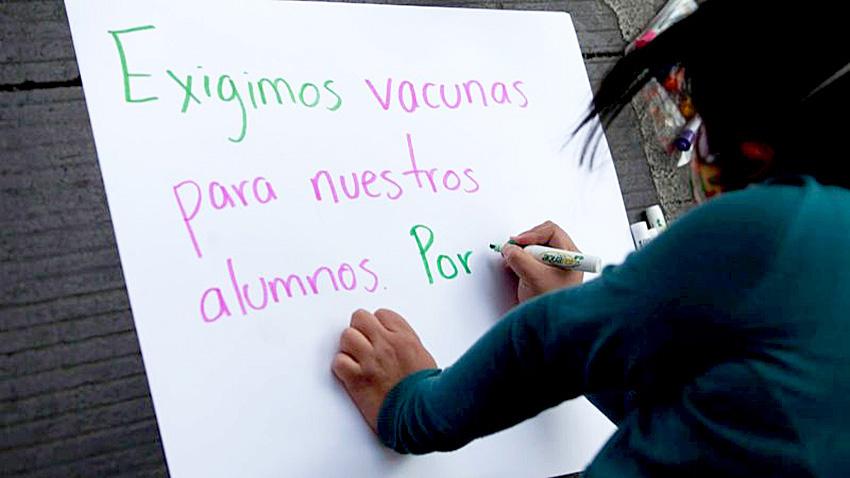 Exigimos vacunas
para nuestros
alumnos. Por